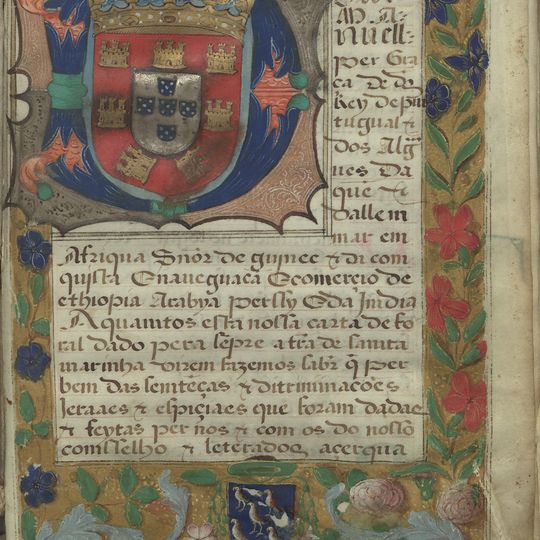 M. A
nuell
per Gra
ça De ds
Rey de pur
tugual &
dos Algr
ves Da
que &
dallem
mar em
Afriqua Snõr de guinee & da com
quista Enaveguaçã Ecomerçio de
ethiopia Arabya perssy Eda Jmdia
A quamtos esta nossa carta de fo
ral dado pera senpre a tra de samta
marinha virem fazemos saber q per
bem das semteças & ditriminações
Jeraaes & espiçiaes que foram dadas
& feytas per nos & com os do nosso
comsselho & leterados açerqua